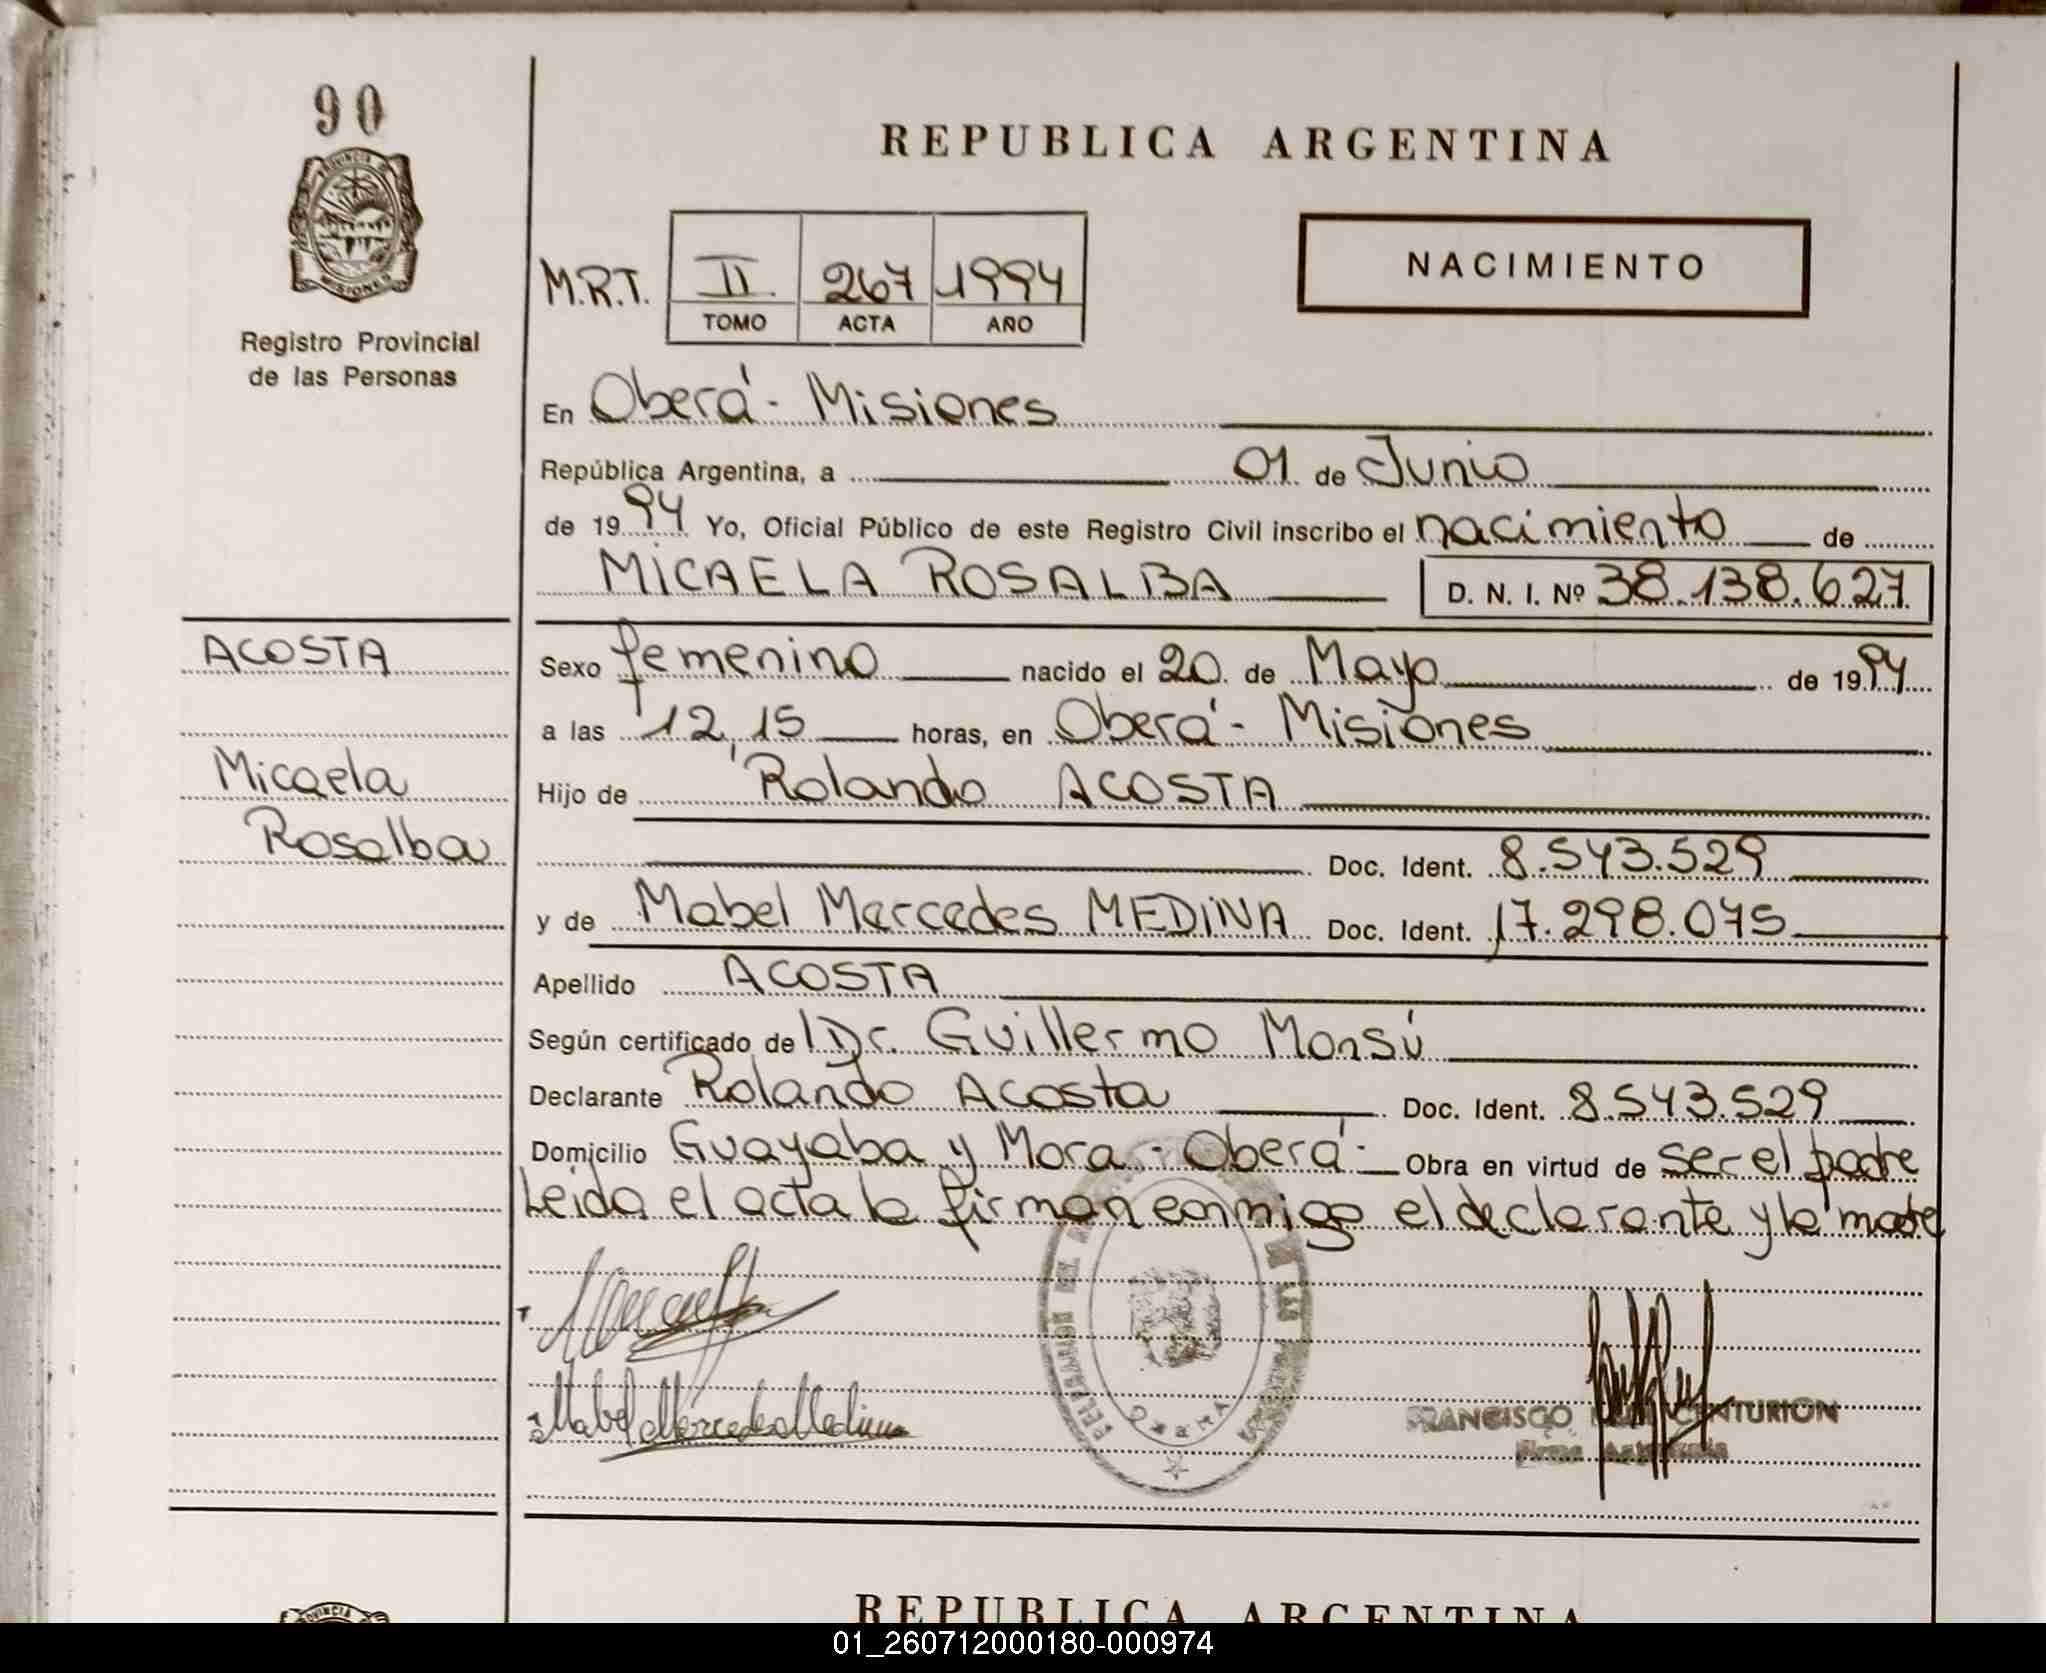 90
PROVINCIA D
MISIONES
Registro Provincial
de las Personas
REPUBLICA ARGENTINA
NACIMIENTO
M.R.T. II 267 1994
TOMO ACTA AÑO
En Oberá - Misiones
República Argentina, a 01 de Junio
de 1994 Yo, Oficial Público de este Registro Civil inscribo el nacimiento de
MICAELA ROSALBA D. N. I. Nº 38.138.627
ACOSTA
Micaela
Rosalba
Sexo femenino nacido el 20 de Mayo de 1994
a las 12,15 horas, en Oberá - Misiones
Hijo de Rolando ACOSTA
Doc. Ident. 8.543.529
y de Mabel Mercedes MEDINA Doc. Ident. 17.298.075
Apellido ACOSTA
Según certificado de l Dr. Guillermo Monsú
Declarante Rolando Acosta Doc. Ident. 8.543.529
Domicilio Guayaba y Mora - Oberá - Obra en virtud de ser el padre
Leida el acta la firman conmigo el declarante y la madre
Mabel Mercedes Medina
OBERA
FRANCISCO CENTURION
REPUBLICA ARGENTINA
01_260712000180-000974